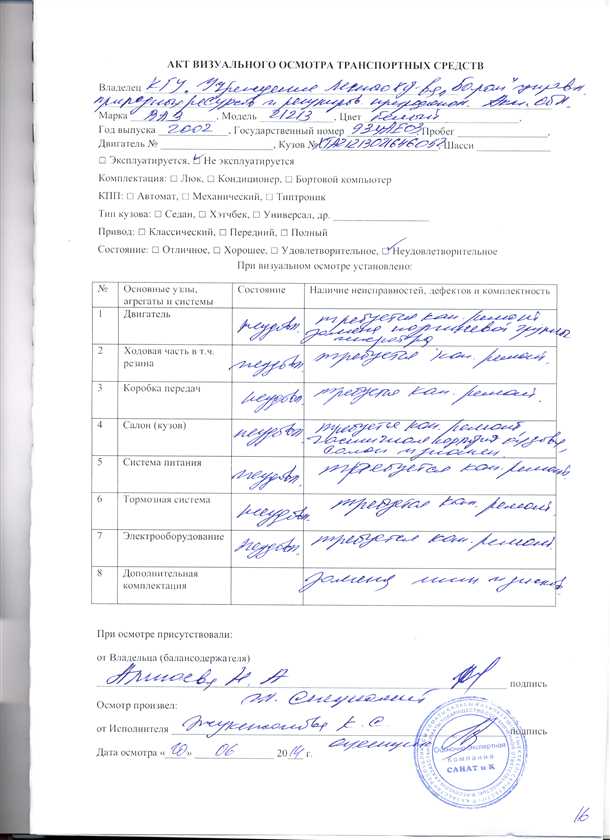 АКТ ВИЗУАЛЬНОГО ОСМОТРА ТРАНСПОРТНЫХ СРЕДСТВ
Владелец КГУ "Учреждение лесного
природных ресурсов и
Марка ВАЗ, Модель 21213, Цвет белый
Год выпуска 2002, Государственный номер Пробег
Двигатель № , Кузов № Шасси
□ Эксплуатируется, □ Не эксплуатируется
Комплектация: □ Люк, □ Кондиционер, □ Бортовой компьютер
КПП: □ Автомат, □ Механический, □ Типтроник
Тип кузова: □ Седан, □ Хэтчбек, □ Универсал, др.
Привод: □ Классический, □ Передний, □ Полный
Состояние: □ Отличное, □ Хорошее, □ Удовлетворительное, □ Неудовлетворительное
При визуальном осмотре установлено:
№ Основные узлы, агрегаты и системы Состояние Наличие неисправностей, дефектов и комплектность
1 Двигатель неудовл. требуется кап. ремонт
замена поршневой группы
2 Ходовая часть в т.ч. резина неудовл. требуется кап. ремонт.
3 Коробка передач неудовл. требуется кап. ремонт.
4 Салон (кузов) неудовл. требуется кап. ремонт,
коррозия кузова,
салон изношен.
5 Система питания неудовл. требуется кап. ремонт
6 Тормозная система неудовл. требуется кап. ремонт
7 Электрооборудование неудовл. требуется кап. ремонт.
8 Дополнительная комплектация замена шин и дисков
При осмотре присутствовали:
от Владельца (балансодержателя)
Н. А подпись
гл. специалист
Осмотр произвел:
от Исполнителя К. С подпись
оценщик
Дата осмотра « 20 » 06 2014 г.
компания
САНАТ и К
16